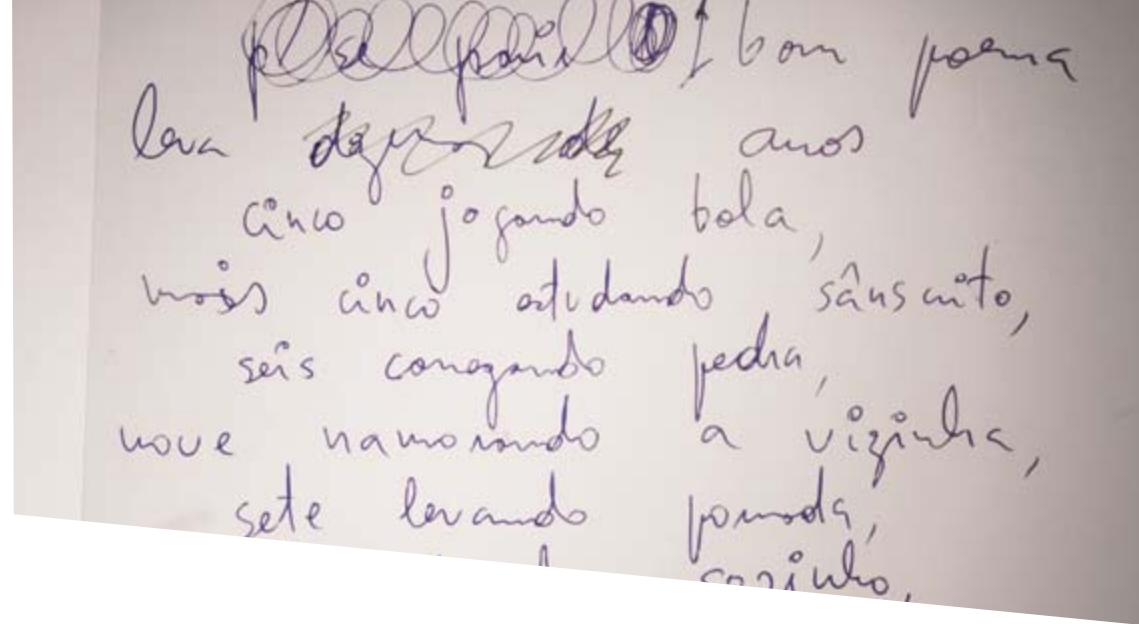 1 bom poema
leva anos
cinco jogando bola,
mais cinco estudando sânscrito,
seis carregando pedra,
nove namorando a vizinha,
sete levando porrada,
sozinho,